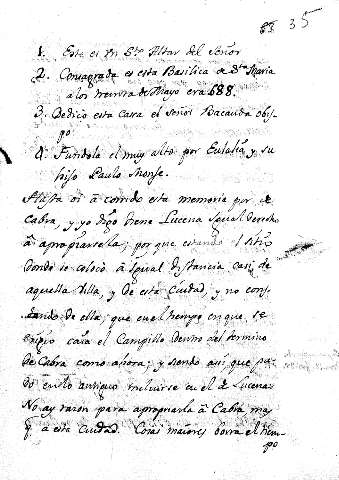 35
1. Este es Vn S.to Altar del Señor
2. Consagrada es esta Basilica de S.ta Maria
a los treinta de Mayo era 688.
3. Dedico esta Casa el Señor Bacauda obis-
po
4. Fundola el muy alto por Eulalia, y su
hijo Paulo Monje.
Hasta oi à corrido esta memoria por de
Cabra, y yo digo tiene Lucena igual derecho
à apropiarsela; por que estando el sitio
donde se colocó à igual distancia casi de
aquella Villa, y de esta Ciudad, y no cons-
tando de ella; que en el tiempo en que se
erigio caia el Campillo dentro del termino
de Cabra como ahora; y siendo asi que pu-
do en lo antiguo incluirse en el de Lucena
No ay razon para apropiarla à Cabra mas
q. a esta Ciudad. Cosas maiores borra el tiem-
po